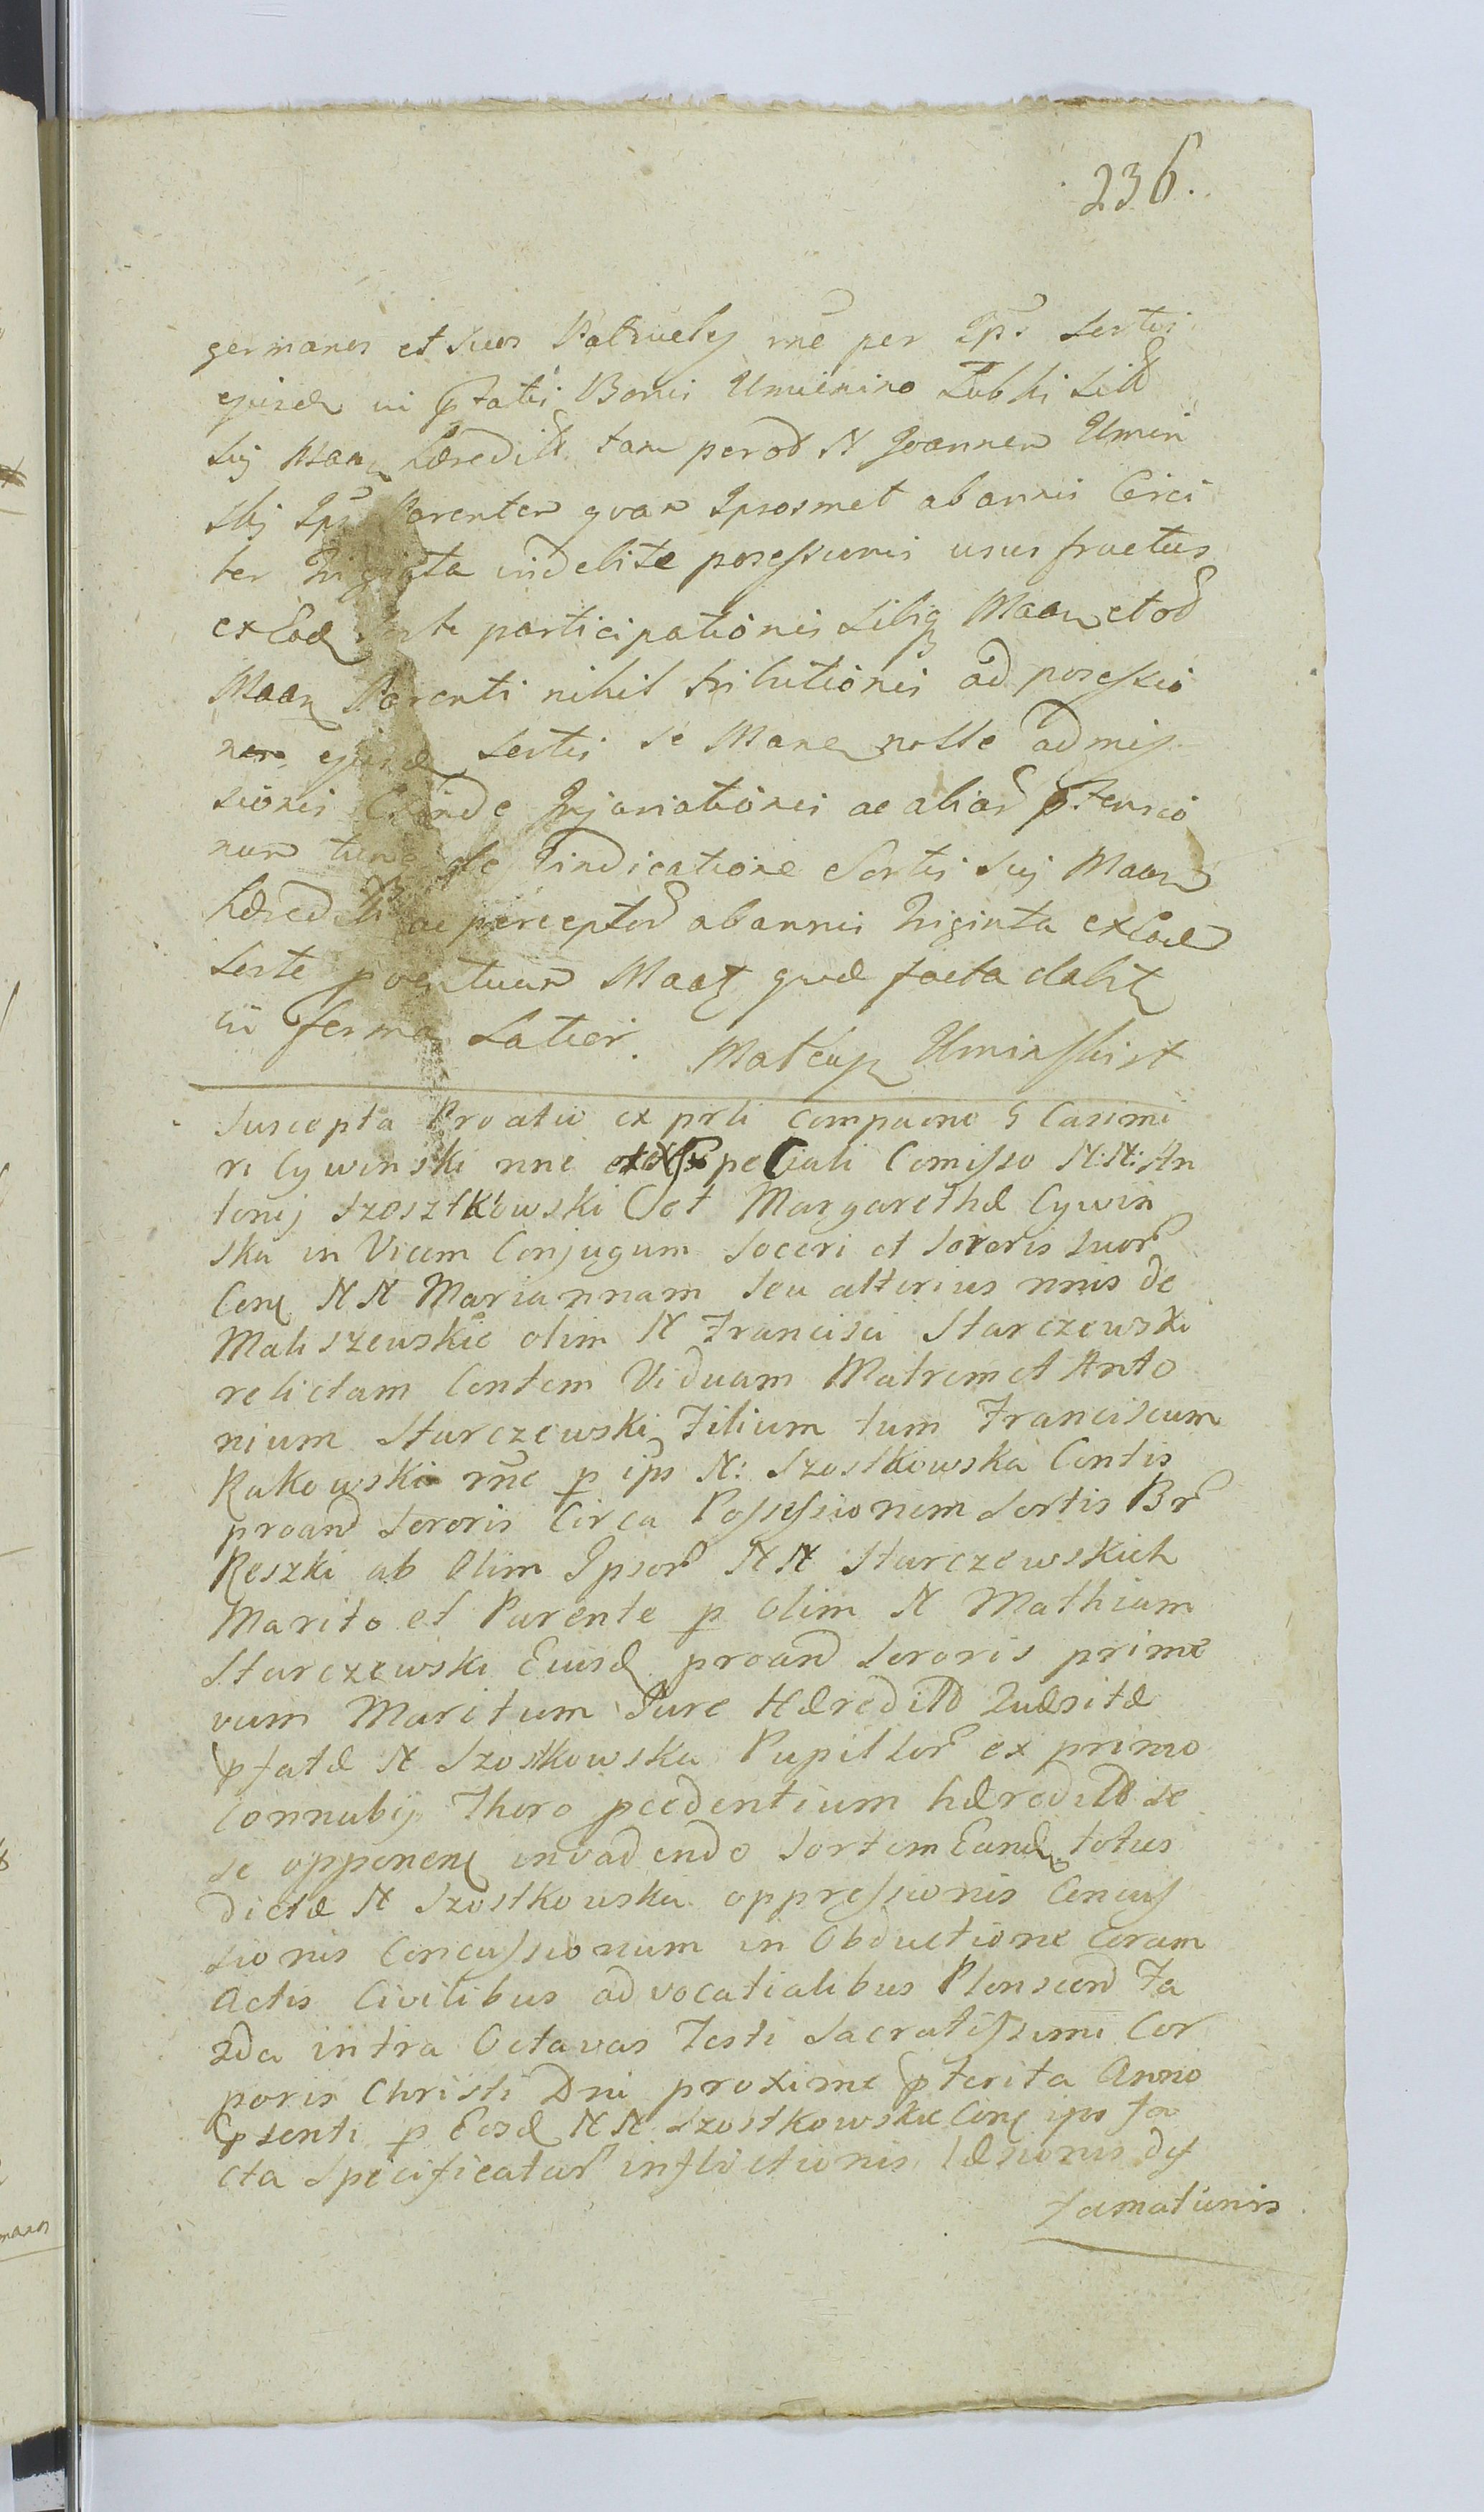 236.
germanos et suos Patrueles rne per Ips Sortis
ejusd in pfatis Bonis Umienino Łubki Sitt
Sij Maan hæredittt tam per od N Joannem Umin
skij Ips Parentem quam Ipsosmet ab annis Circi
ter triginta indebite possessionis usus fructus
ex Ead Sorte participationis Sibiq Maan et od
Maan Parenti nihil tributionis ad possessio
nem ejusd Sortis se Mane nolle admis
sionis Exinde Injuriationis ac aliar ptensio
num tum de Vindicatione Sortis Sui Maan
hæreditt ac perceptor ab annis triginta ex Ead
Sorte proventuum Maaq quæ facta dabit
in forma Latior. Matheus Uminski st
Suscepta Proatio ex prli Compacne G Casimi
ri Cywinski nne et ex speciali Comisso N: N: An
tonij Szosztkowski Set Margarethæ Cywin
ska in Vicem Conjugum Soceri et Sororis suor
Cone N N Mariannam seu alterius nnis de
Maliszewskie olim N Francisci Starczewski
relictam Contem Viduam Matrem et Anto
nium Starczewski Filium tum Franciscum
Rakowski rne p ips N: Szostkowska Contis
proand Sororis Circa Possessionem Sortis Br
Reszki ab Olim Ipsor N N Starczewskich
Marito et Parente p Olim N Mathiam
Starczewski Eiusd proand Sororis prime
vum Maritum Jure Hæreditt Quæsitæ
pfatæ N Szostkowska Pupillor ex primo
Connubij Thoro pcedentium hæreditt se
se opponene invadendo Sortem Eand totus
dictæ N Szostkowska oppressionis Concus
sionis Concussionum in Obductione Coram
Actis Civilibus advocatialibus Plonscen Fa
zda intra Octavas Festi Sacratissimi Cor
poris Christi Dni proxime pterita Anno
psenti p Eosd N N Szostkowskie Cone ips fa
cta Specificatar inflictionis læsionis dif
famationis